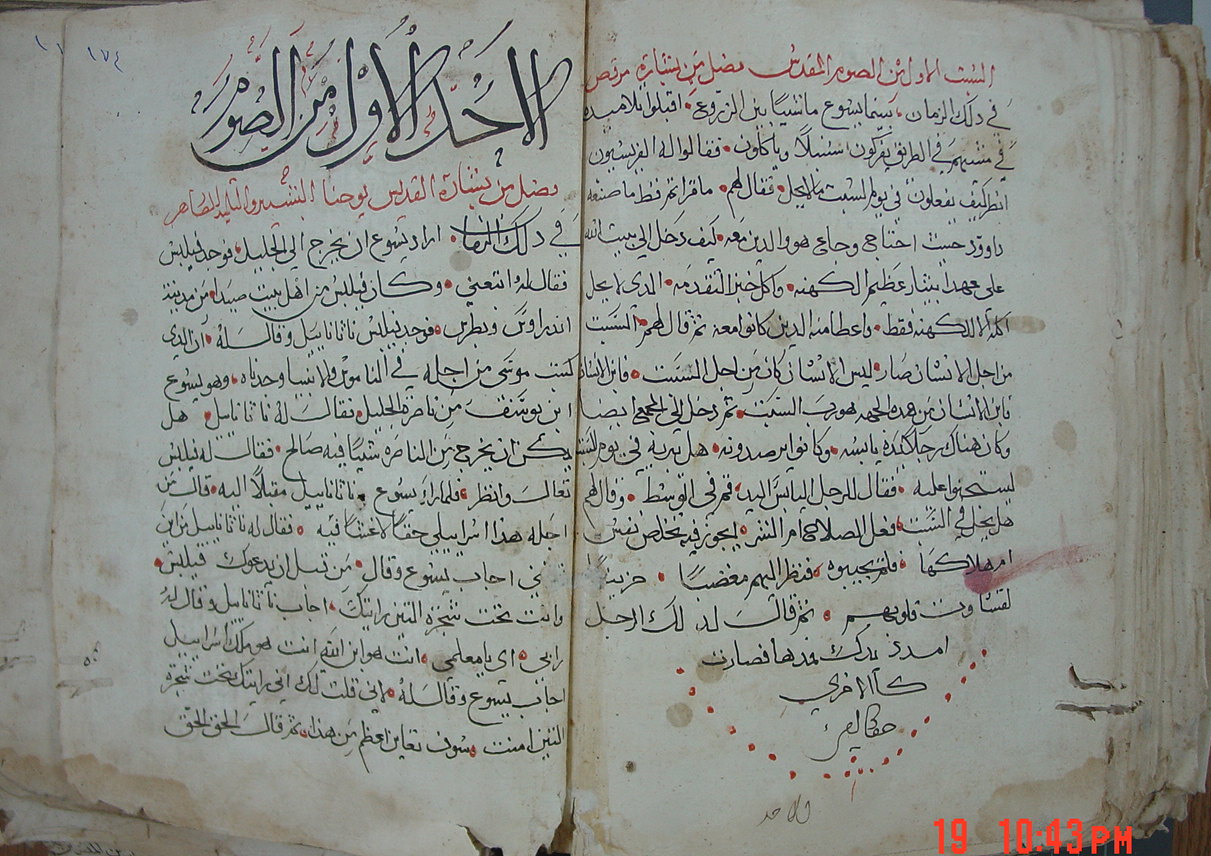 السبت الاول من الصوم المقدس فصل من بشارة مرقص
في دلك الزمان بينما يسوع ماشيًا بين الزروع اقبلوا تلاميده
في مشيهم في الطريق يفركون سنبلًا وياكلون فقالوا له الفريسيون
انظر كيف يفعلون في يوم السبت ما لا يحل فقال لهم ما قراتم قط ما صنعه
داوود حيت احتاج وجاع هو والدين معه كيف دخل الى بيت الله
على عهد ابيتار عظيم الكهنه واكل خبز التقدمه الدي لا يحل
اكله الا للكهنه فقط واعطا منه الدين كانوا معه تم قال لهم السبت
من اجل الانسان صار ليس الانسان كان من اجل السبت فابن الانسان
من هده الجهه هو رب السبت تم دخل الى المجمع ايضا
وكان هناك رجل يده يابسه وكانوا يرصدونه هل يبريه في يوم السبت
ليستحبوا عليه فقال للرجل اليابس اليد قم في الوسط وقال لهم
هل يحل في السبت فعل الصلاح ام الشر ايجوز فيه تخلص نفس
ام هلاكها فلم يجيبوه فنظر اليهم مغضبًا حزينًا
لقساوت قلوبهم تم قال لدلك الرجل
امدد يدك فمدها فصارت
كالاخرى
حقًا
الاحد
١٧٤
الاحد الاول من الصوم
فصل من بشارة القديس يوحنا البشير والتلميد الطاهر
في دلك الزمان اراد يسوع ان يخرج الى الجليل فوجد فيلبس
فقال له اتبعني وكان فيلبس من اهل بيت صيدا من مدينة
اندراوس وبطرس فوجد فيلبس ناتاناييل وقال له ان الدي
كتب موسى من اجله في الناموس والانبيا وجدناه وهو يسوع
ابن يوسف من ناصرة الجليل فقال له ناتاناييل هل
يمكن ان يخرج من الناصره شيًا فيه صالح فقال له فيلبس
تعال وانظر فلما راء يسوع ناتاناييل مقبلًا اليه قال من
اجله هذا اسراييلي حقًا لا غش فيه فقال له ناتاناييل من اين
تعرفني اجاب يسوع وقال من قبل ان يدعوك فيلبس
وانت تحت شجرة التين رايتك اجاب ناتاناييل وقال له
رابي اي يا معلمي انت هو ابن الله انت هو ملك اسراييل
اجاب يسوع وقال له لاني قلت لك اني رايتك تحت شجرة
التين امنت سوف تعاين اعظم من هذا تم قال الحق الحق
19 10:43 PM